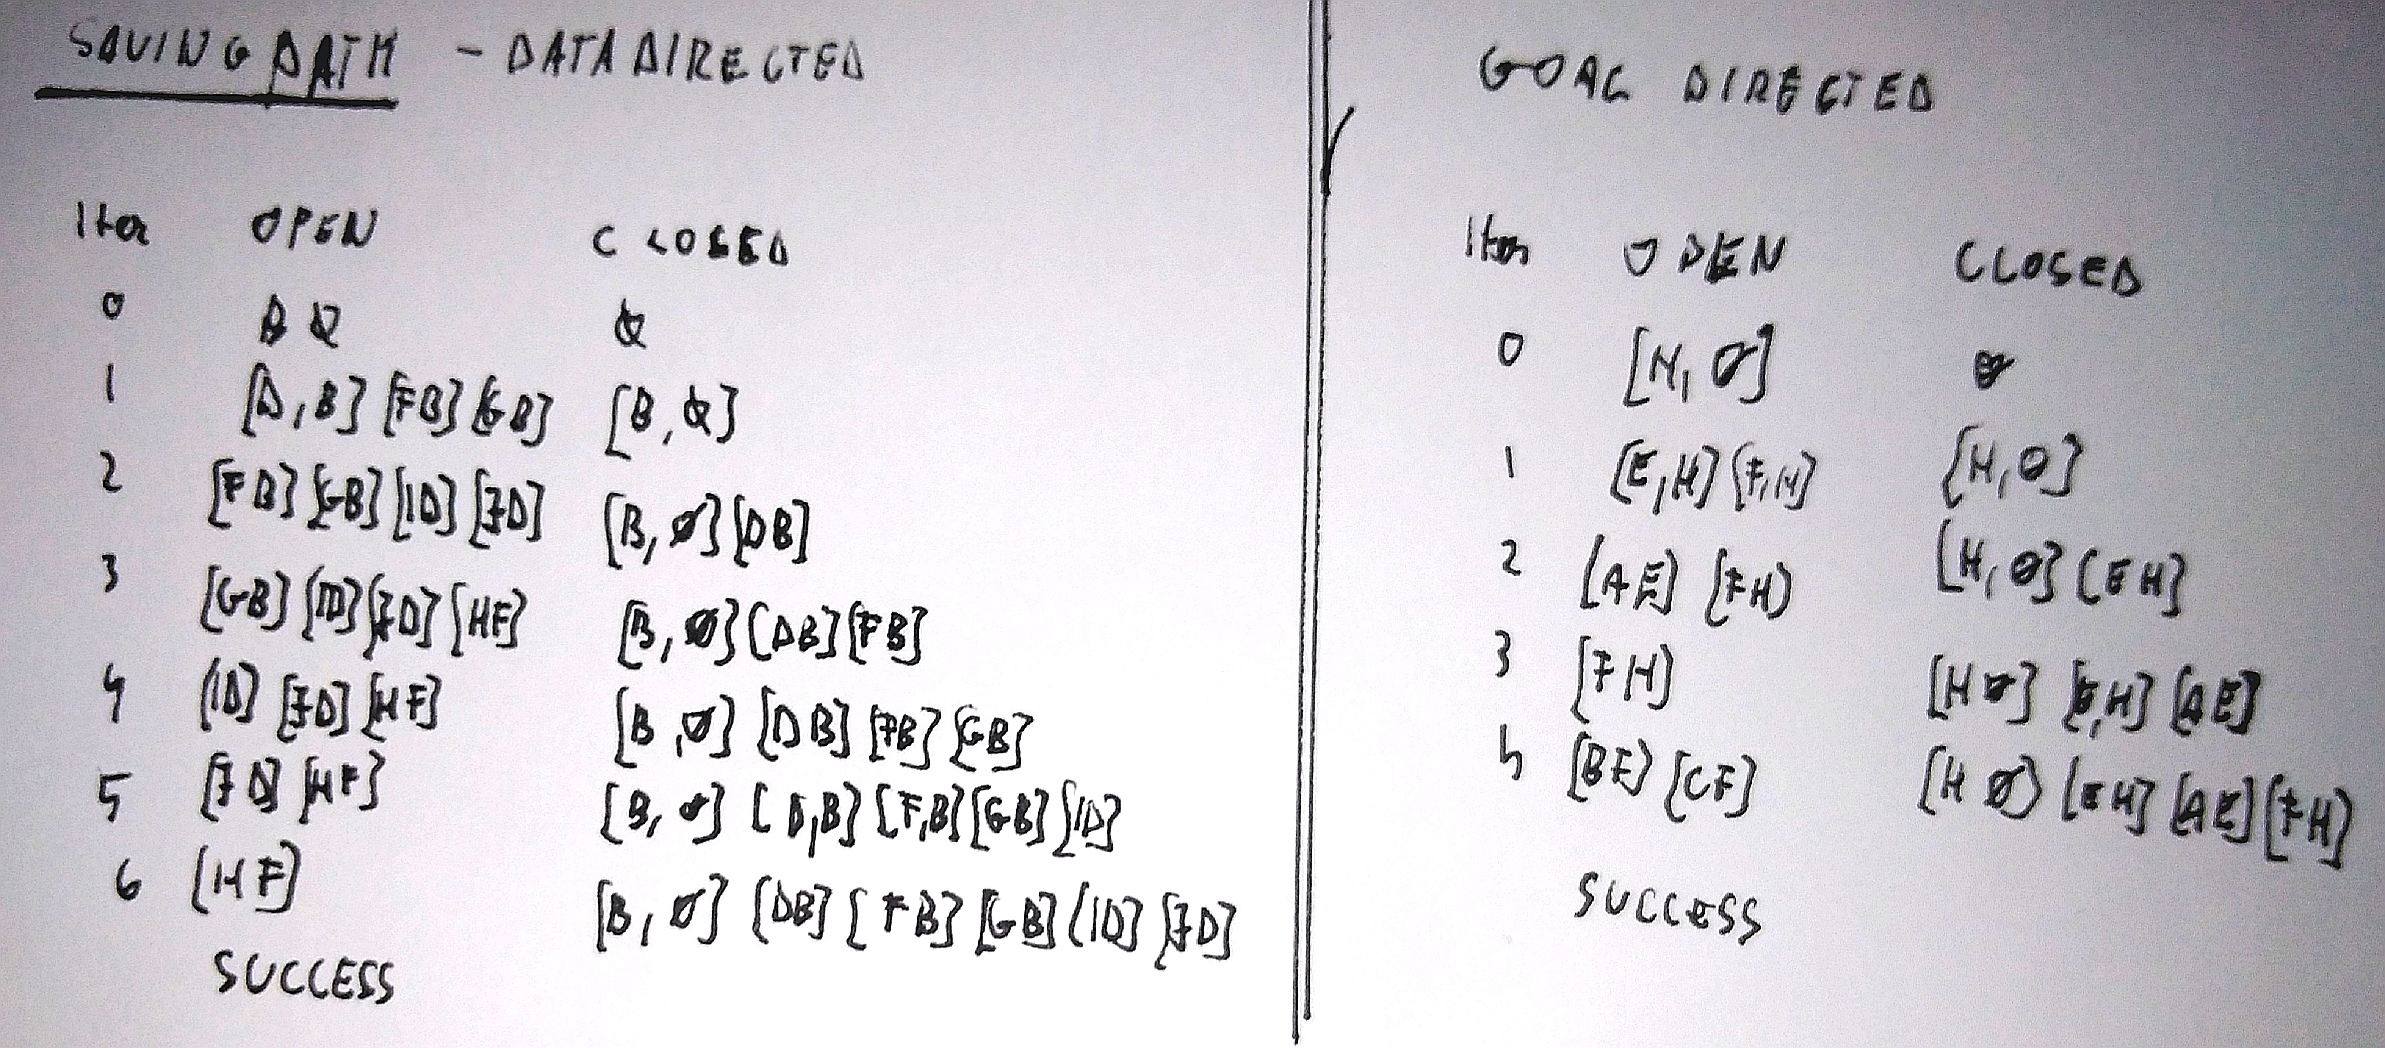 SAVING PATH - DATA DIRECTED
Iter OPEN CLOSED
0 B Ø Ø
1 [D,B] [FB] [GB] [B,Ø]
2 [FB] [GB] [ID] [JD] [B,Ø] [DB]
3 [GB] [ID] [JD] [HF] [B,Ø] [DB] [FB]
4 [ID] [JD] [HF] [B,Ø] [DB] [FB] [GB]
5 [JD] [HF] [B,Ø] [D,B] [F,B] [GB] [ID]
6 [HF] [B,Ø] [DB] [FB] [GB] [ID] [JD]
SUCCESS
GOAL DIRECTED
Iter OPEN CLOSED
0 [H,Ø] Ø
1 [E,H] [F,H] [H,Ø]
2 [AE] [FH] [H,Ø] [EH]
3 [FH] [HØ] [E,H] [AE]
4 [BF] [CF] [HØ] [EH] [AE] [FH]
SUCCESS